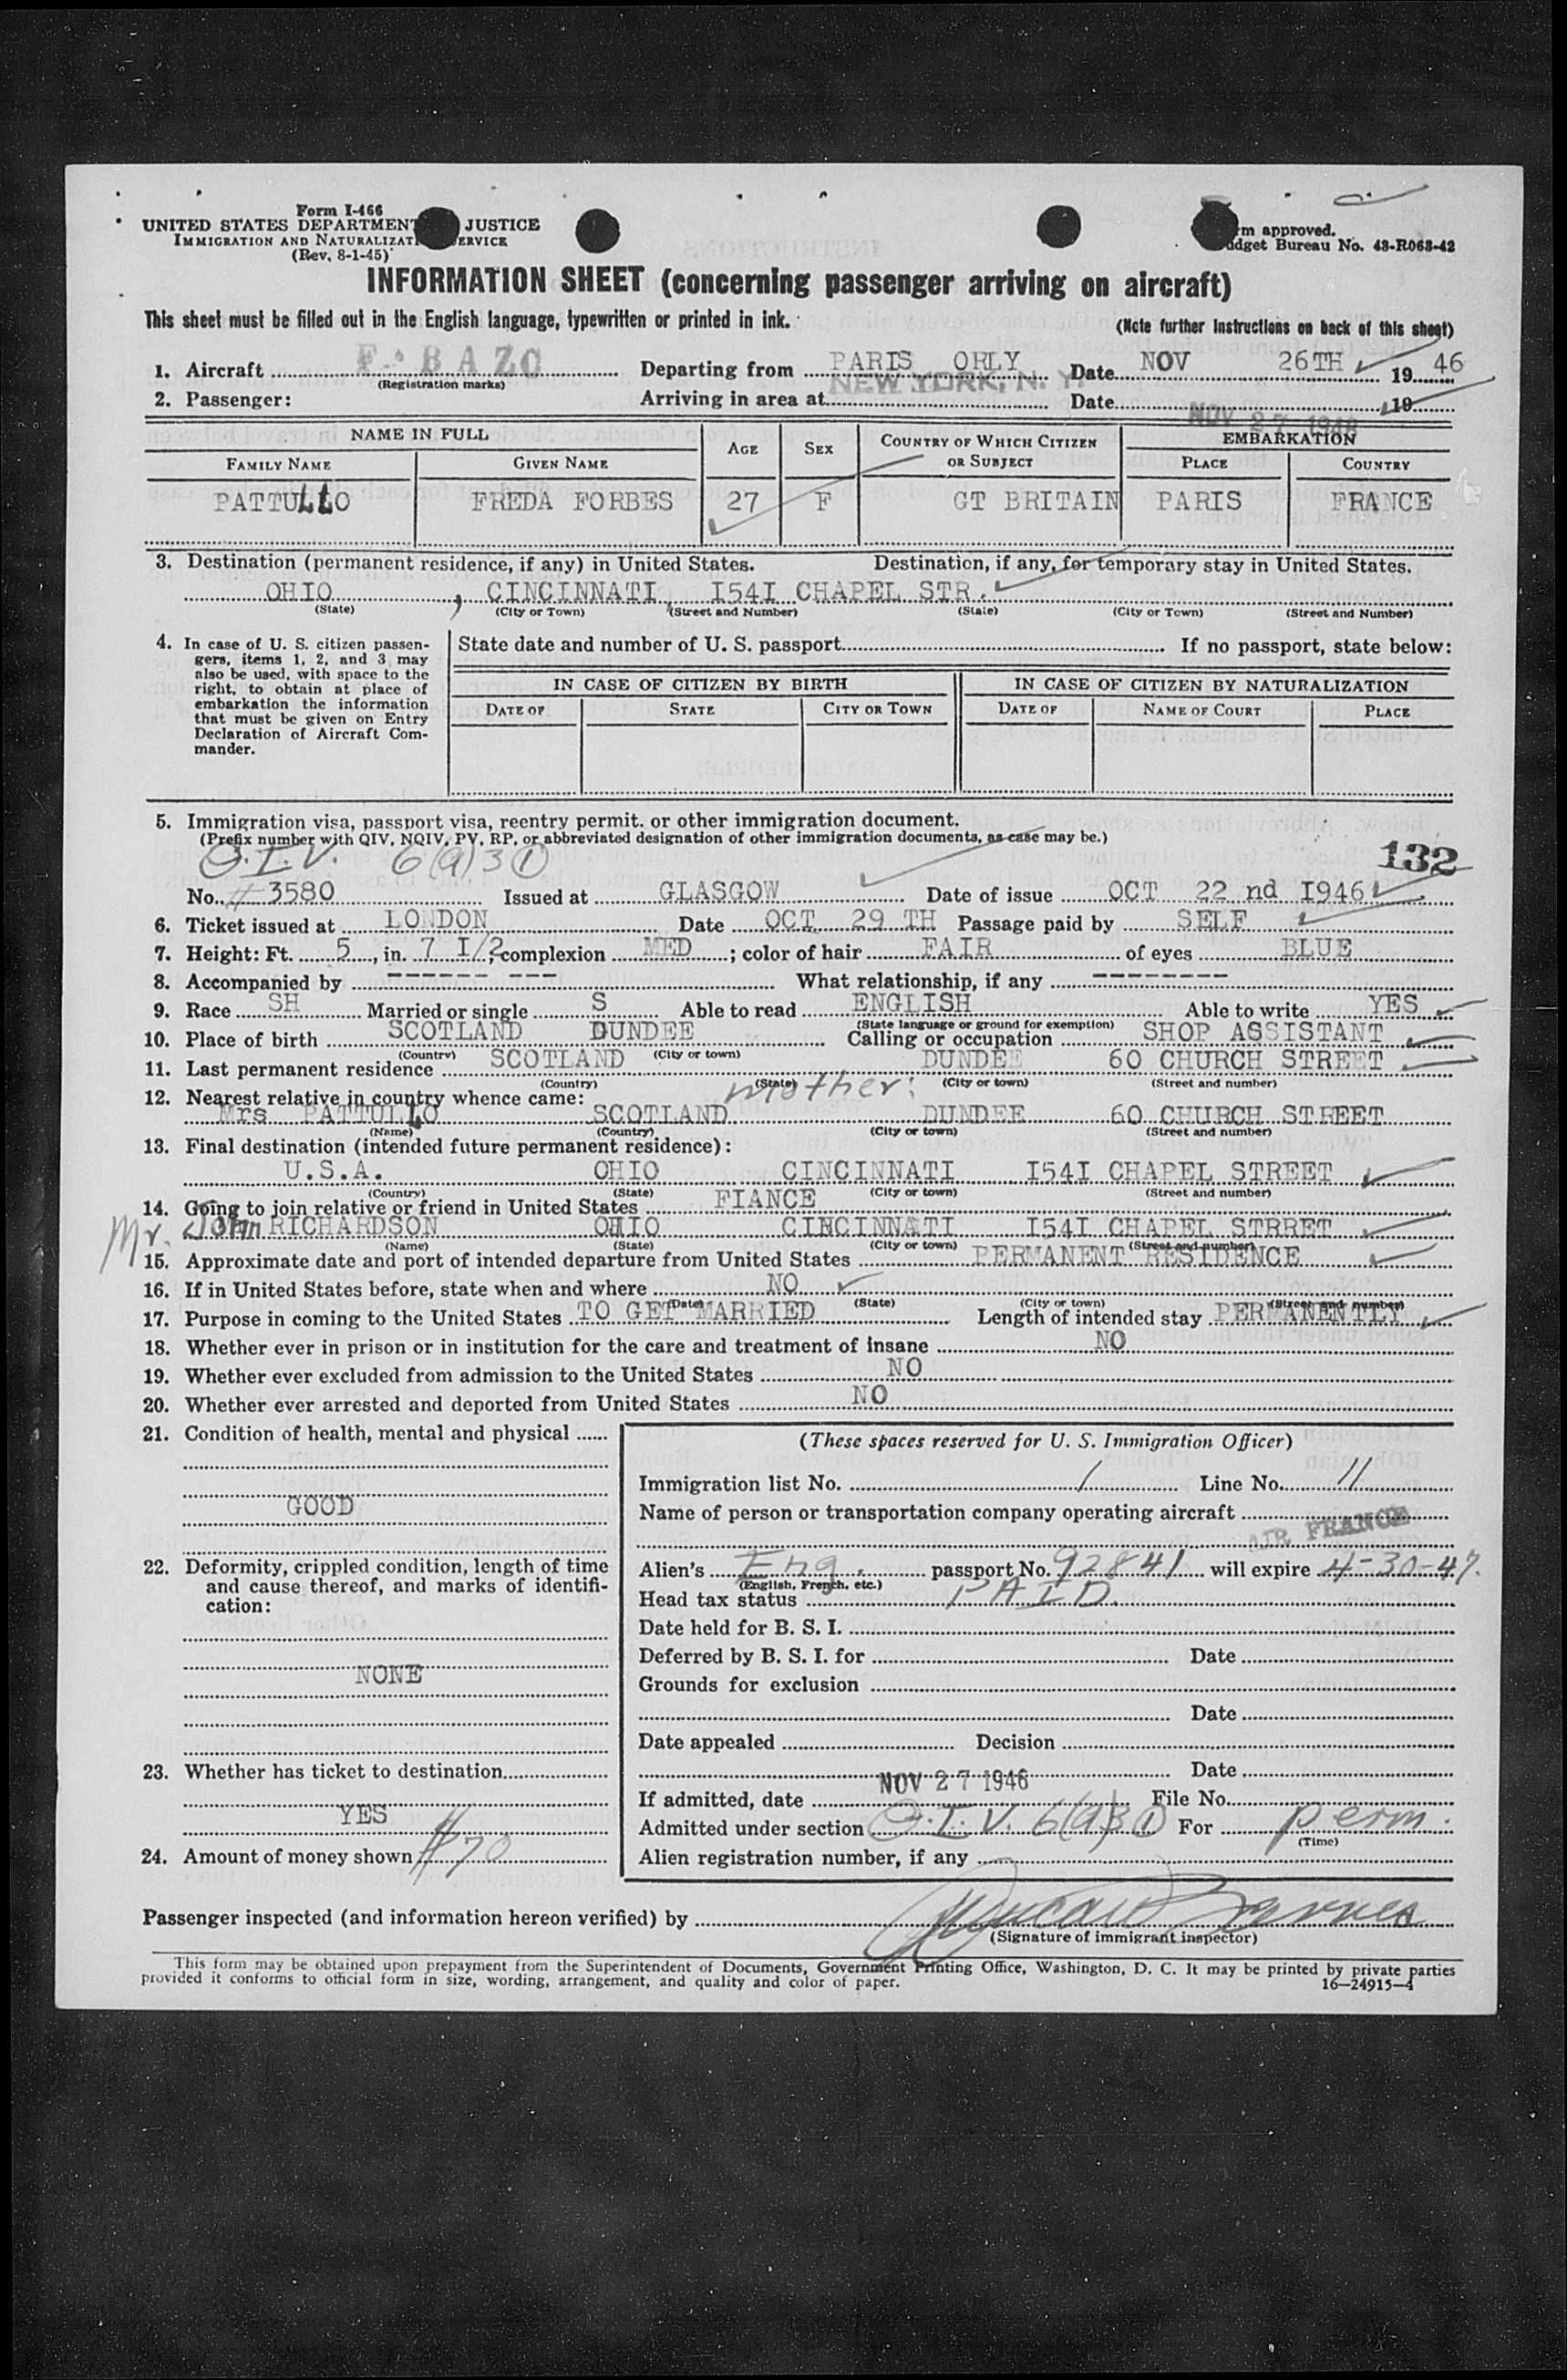 Form I-466
UNITED STATES DEPARTMENT JUSTICE
IMMIGRATION AND NATURALIZATI ERVICE
(Rev. 8-1-45)
rm approved.
udget Bureau No. 43-R063-42
INFORMATION SHEET (concerning passenger arriving on aircraft)
This sheet must be filled out in the English language, typewritten or printed in ink. (Note further instructions on back of this sheet)
1. Aircraft F. BAZC Departing from PARIS ORLY Date NOV 26TH 19 46
(Registration marks)
2. Passenger: Arriving in area at NEW YORK, N. Y. Date NOV 27 1946 19
NAME IN FULL AGE SEX COUNTRY OF WHICH CITIZEN OR SUBJECT EMBARKATION
FAMILY NAME GIVEN NAME PLACE COUNTRY
PATTULLO FREDA FORBES 27 F GT BRITAIN PARIS FRANCE
3. Destination (permanent residence, if any) in United States. Destination, if any, for temporary stay in United States.
OHIO, CINCINNATI I54I CHAPEL STR.
(State) (City or Town) (Street and Number) (State) (City or Town) (Street and Number)
4. In case of U. S. citizen passen-
gers, items 1, 2, and 3 may
also be used, with space to the
right, to obtain at place of
embarkation the information
that must be given on Entry
Declaration of Aircraft Com-
mander.
State date and number of U. S. passport If no passport, state below:
IN CASE OF CITIZEN BY BIRTH IN CASE OF CITIZEN BY NATURALIZATION
DATE OF STATE CITY OR TOWN DATE OF NAME OF COURT PLACE
5. Immigration visa, passport visa, reentry permit, or other immigration document.
(Prefix number with QIV, NQIV, PV, RP, or abbreviated designation of other immigration documents, as case may be.)
Q.I.V. 6(a)3 ① 132
No. # 3580 Issued at GLASGOW Date of issue OCT 22 nd I946
6. Ticket issued at LONDON Date OCT 29 TH Passage paid by SELF
7. Height: Ft. 5, in. 7 I/2; complexion MED; color of hair FAIR of eyes BLUE
8. Accompanied by ------ --- What relationship, if any ---------
9. Race SH Married or single S Able to read ENGLISH Able to write YES
(State language or ground for exemption)
10. Place of birth SCOTLAND DUNDEE Calling or occupation SHOP ASSISTANT
(Country) (City or town)
11. Last permanent residence SCOTLAND DUNDEE 60 CHURCH STREET
(Country) (State) (City or town) (Street and number)
12. Nearest relative in country whence came: mother:
Mrs PATTULLO SCOTLAND DUNDEE 60 CHURCH STREET
(Name) (Country) (City or town) (Street and number)
13. Final destination (intended future permanent residence):
U.S.A. OHIO CINCINNATI I54I CHAPEL STREET
(Country) (State) (City or town) (Street and number)
14. Going to join relative or friend in United States FIANCE
Mr. John RICHARDSON OHIO CINCINNATI I54I CHAPEL STRRET
(Name) (State) (City or town) (Street and number)
15. Approximate date and port of intended departure from United States PERMANENT RESIDENCE
16. If in United States before, state when and where NO
(Date) (State) (City or town) (Street and number)
17. Purpose in coming to the United States TO GET MARRIED Length of intended stay PERMANENTLY
18. Whether ever in prison or in institution for the care and treatment of insane NO
19. Whether ever excluded from admission to the United States NO
20. Whether ever arrested and deported from United States NO
21. Condition of health, mental and physical
GOOD
22. Deformity, crippled condition, length of time
and cause thereof, and marks of identifi-
cation:
NONE
23. Whether has ticket to destination
YES
24. Amount of money shown $70
(These spaces reserved for U. S. Immigration Officer)
Immigration list No. 1 Line No. 11
Name of person or transportation company operating aircraft
AIR FRANCE
Alien's Eng. passport No. 92841 will expire 4-30-47.
(English, French, etc.)
Head tax status PAID.
Date held for B. S. I.
Deferred by B. S. I. for Date
Grounds for exclusion
Date
Date appealed Decision
Date
If admitted, date NOV 27 1946 File No.
Admitted under section Q.I.V. 6(a)3 ① For perm.
(Time)
Alien registration number, if any
Passenger inspected (and information hereon verified) by
(Signature of immigrant inspector)
This form may be obtained upon prepayment from the Superintendent of Documents, Government Printing Office, Washington, D. C. It may be printed by private parties
provided it conforms to official form in size, wording, arrangement, and quality and color of paper. 16—24915-4